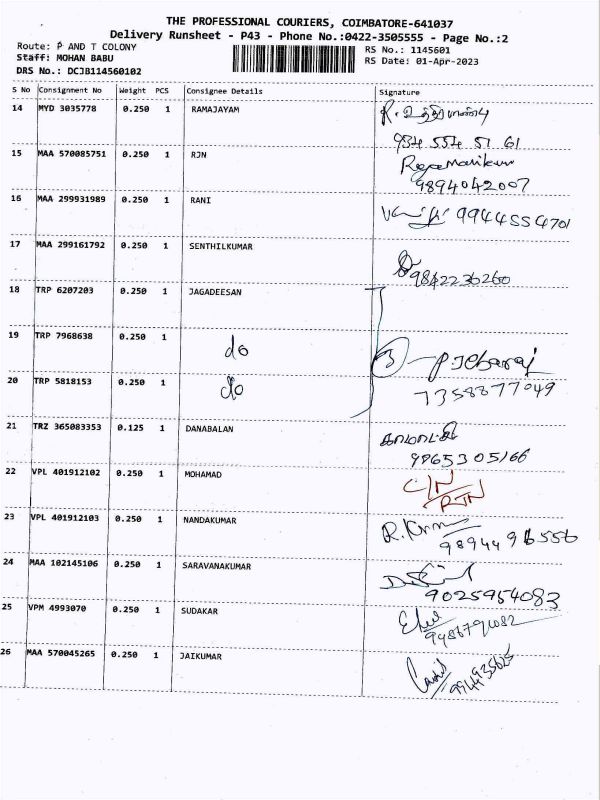 THE PROFESSIONAL COURIERS, COIMBATORE-641037
Delivery Runsheet - P43 - Phone No.:0422-3505555 - Page No.:2
Route: P AND T COLONY RS No.: 1145601
Staff: MOHAN BABU RS Date: 01-Apr-2023
DRS No.: DCJB114560102
S No Consignment No Weight PCS Consignee Details Signature
14 MYD 3035778 0.250 1 RAMAJAYAM
934 554 51 61
15 MAA 570085751 0.250 1 RJN
9894042007
16 MAA 299931989 0.250 1 RANI 9944554701
17 MAA 299161792 0.250 1 SENTHILKUMAR
9842236260
18 TRP 6207203 0.250 1 JAGADEESAN
19 TRP 7968638 0.250 1 do
3 P. Jebaraj
20 TRP 5818153 0.250 1 do
7358877049
21 TRZ 365083353 0.125 1 DANABALAN காமாட்சி
9865305166
22 VPL 401912102 0.250 1 MOHAMAD C/N
RTN
23 VPL 401912103 0.250 1 NANDAKUMAR
98944 96556
24 MAA 102145106 0.250 1 SARAVANAKUMAR
9025954083
25 VPM 4993070 0.250 1 SUDAKAR
26 MAA 570045265 0.250 1 JAIKUMAR